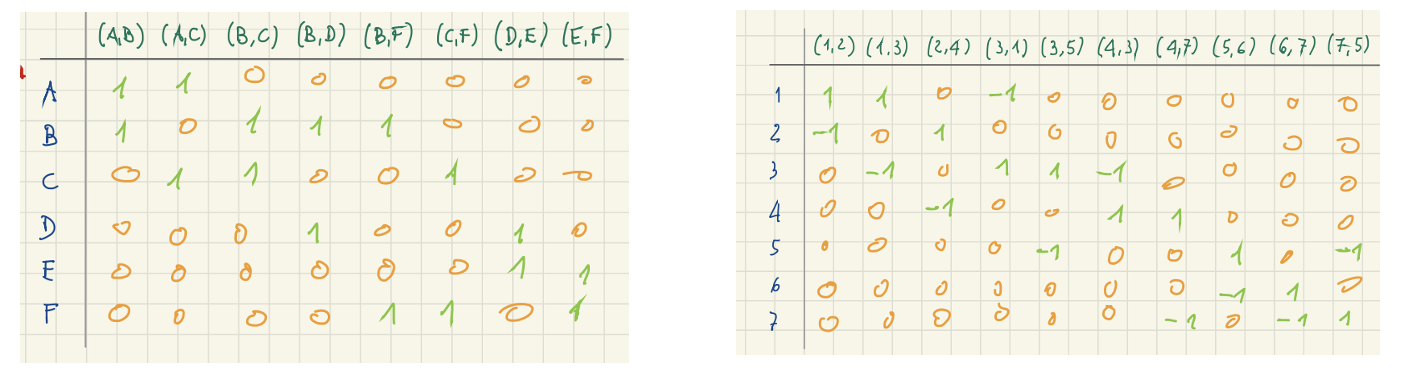 (A,B) (A,C) (B,C) (B,D) (B,F) (C,F) (D,E) (E,F)
A 1 1 0 0 0 0 0 0
B 1 0 1 1 1 0 0 0
C 0 1 1 0 0 1 0 0
D 0 0 0 1 0 0 1 0
E 0 0 0 0 0 0 1 1
F 0 0 0 0 1 1 0 1
(1,2) (1,3) (2,4) (3,1) (3,5) (4,3) (4,7) (5,6) (6,7) (7,5)
1 1 1 0 -1 0 0 0 0 0 0
2 -1 0 1 0 0 0 0 0 0 0
3 0 -1 0 1 1 -1 0 0 0 0
4 0 0 -1 0 0 1 1 0 0 0
5 0 0 0 0 -1 0 0 1 0 -1
6 0 0 0 0 0 0 0 -1 1 0
7 0 0 0 0 0 0 -1 0 -1 1